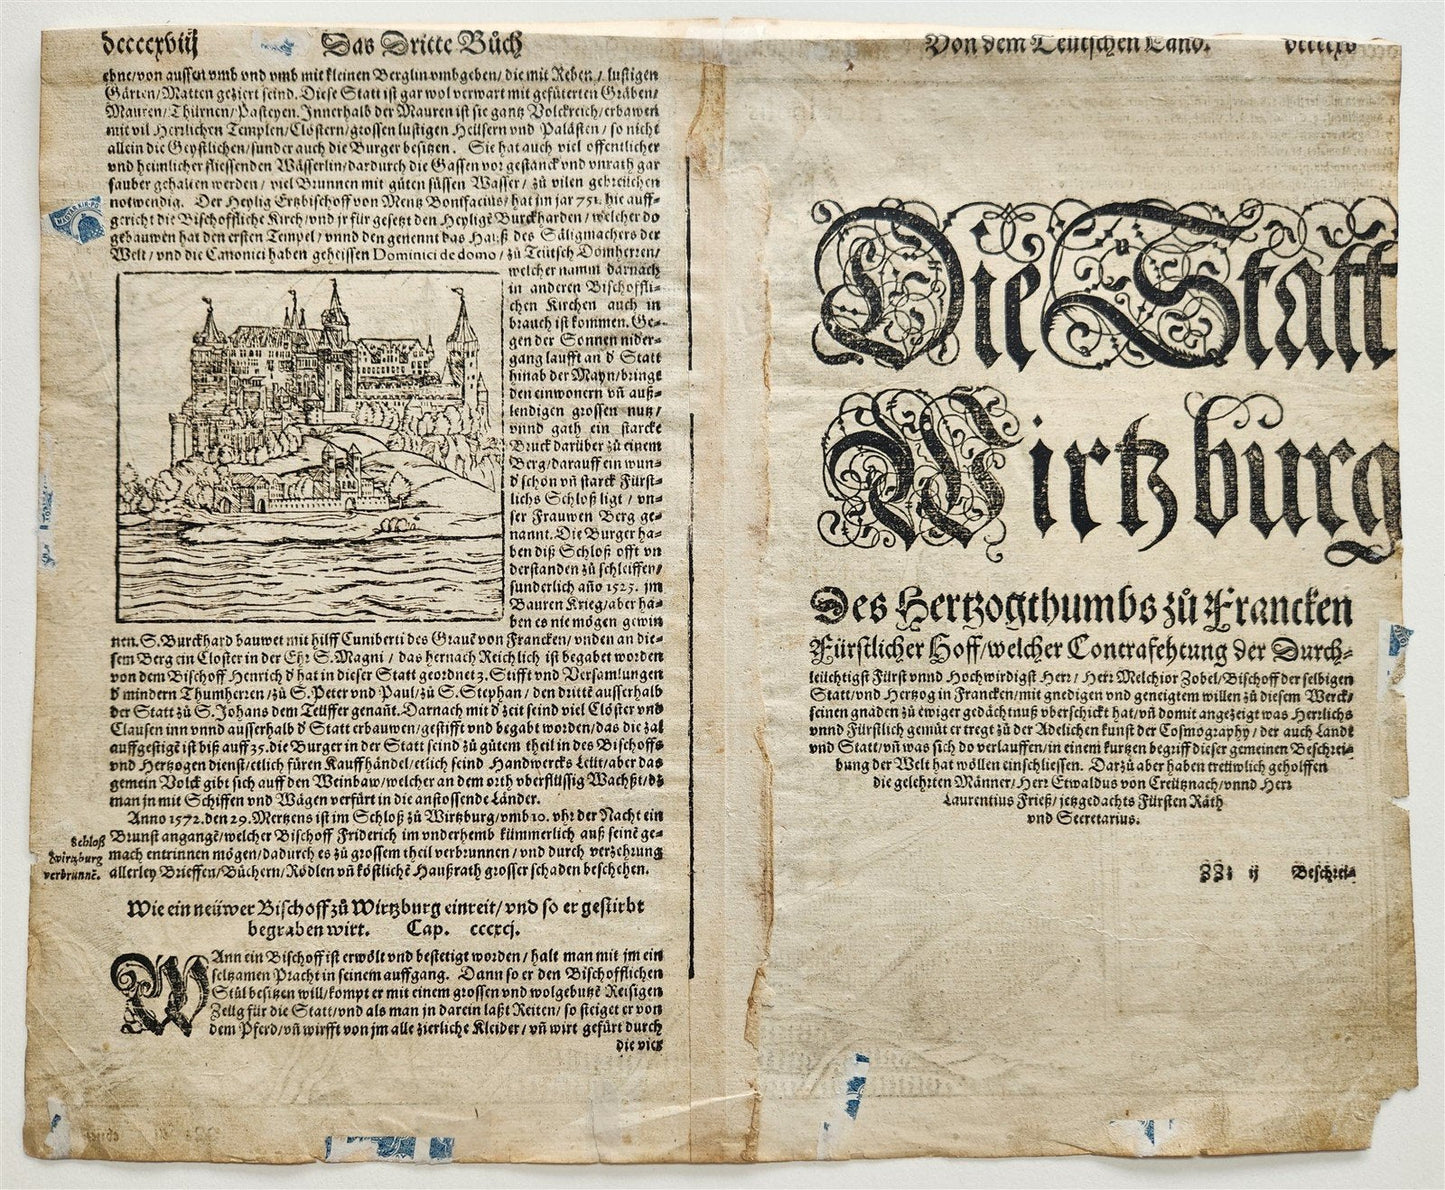 dccccxviij Das Dritte Bůch
ebne/von aussen vmb vnd vmb mit kleinen Berglin vmbgeben/die mit Reben/lustigen
Gärten/Matten geziert seind. Diese Statt ist gar wol verwart mit gefüterten Gräben/
Mauren/Thürnen/Pasteyen. Innerhalb der Mauren ist sie gantz Volckreich/erbawen
mit vil Herrlichen Templen/Clöstern/grossen lustigen Heüsern vnd Palästen/so nicht
allein die Geystlichen/sunder auch die Burger besitzen. Sie hat auch viel offentlicher
vnd heimlicher fliessenden Wässerlin/dardurch die Gassen vor gestanck vnd vnrath gar
sauber gehalten werden/viel Brunnen mit gůten süssen Wasser/zů vilen gebreüchen
notwendig. Der Heylig Ertzbischoff von Mentz Bonifacius/hat im jar 751. hie auff-
gericht die Bischoffliche Kirch/vnd jr für gesetzt den Heyligē Burckharden/welcher do
gebauwen hat den ersten Tempel/vnnd den genennt das Hauß des Säligmachers der
Welt/vnd die Canonici haben geheissen Dominici de domo/zů Teütsch Domherren/
welcher namm darnach
in anderen Bischoffli-
chen Kirchen auch in
brauch ist kommen. Ge-
gen der Sonnen nider-
gang laufft an d' Statt
hinab der Mayn/bringt
den einwonern vn̄ auß-
lendigen grossen nutz/
vnnd gath ein starcke
Bruck darüber zů einem
Berg/darauff ein wun-
d'schön vn̄ starck Fürst-
lichs Schloß ligt/vn-
ser Frauwen Berg ge-
nannt. Die Burger ha-
ben diß Schloß offt vn
derstanden zů schleiffen/
sunderlich año 1525. im
Bauren Krieg/aber ha-
ben es nie mögen gewin
nen. S. Burckhard bauwet mit hilff Cuniberti des Grauē von Francken/vnden an die-
sem Berg ein Closter in der Ehr S. Magni/das hernach Reichlich ist begabet worden
von dem Bischoff Henrich d' hat in dieser Statt geordnet 3. Stifft vnd Versamlungen
d' mindern Thumherren/zů S. Peter vnd Paul/zů S. Stephan/den drittē ausserhalb
der Statt zů S. Johans dem Teüffer genañt. Darnach mit d' zeit seind viel Clöster vnd
Clausen inn vnnd ausserhalb d' Statt erbauwen/gestifft vnd begabt worden/das die zal
auffgestigē ist biß auff 35. die Burger in der Statt seind zů gůtem theil in des Bischoffs
vnd Hertzogen dienst/etlich füren Kauffhändel/etlich seind Handwercks Leüt/aber das
gemein Volck gibt sich auff den Weinbaw/welcher an dem orth vberflüssig Wachßt/dē
man jn mit Schiffen vnd Wägen verfürt in die anstossende Länder.
Anno 1572. den 29. Mertzens ist im Schloß zů Wirtzburg/vmb 10. vhr der Nacht ein
Brunst angangē/welcher Bischoff Friderich im vnderhemb kümmerlich auß seinē ge-
mach entrinnen mögen/dadurch es zů grossem theil verbrunnen/vnd durch verzehrung
allerley Brieffen/Büchern/Rödlen vn̄ köstlichē Haußrath grosser schaden beschehen.
Schloß
Wirtzburg
verbrunnē.
Wie ein neüwer Bischoff zů Wirtzburg einreit/vnd so er gestirbt
begraben wirt. Cap. cccxcj.
WAnn ein Bischoff ist erwölt vnd bestetigt worden/halt man mit jm ein
seltzamen Pracht in seinem auffgang. Dann so er den Bischofflichen
Stůl besitzen will/kompt er mit einem grossen vnd wolgebutzē Reisigen
Zeüg für die Statt/vnd als man jn darein laßt Reiten/so steiget er von
dem Pferd/vn̄ wirfft von jm alle zierliche Kleider/vn̄ wirt gefürt durch
die vier
Von dem Teütschen Land.
Die Statt
Wirtzburg
Des Hertzogthumbs zů Francken
Fürstlicher Hoff/welcher Contrafehtung der Durch-
leüchtigst Fürst vnnd Hochwirdigst Herr/Herr Melchior Zobel/Bischoff der selbigen
Statt/vnd Hertzog in Francken/mit gnedigen vnd geneigtem willen zů diesem Werck/
seinen gnaden zů ewiger gedächtnuß vberschickt hat/vn̄ domit angezeigt was Herrlichs
vnnd Fürstlich gemüt er tregt zů der Adelichen kunst der Cosmography/der auch Landt
vnd Statt/vn̄ was sich do verlauffen/in einem kurtzen begriff dieser gemeinen Beschrei-
bung der Welt hat wöllen einschliessen. Darzů aber haben trewlich geholffen
die gelehrten Männer/Herr Etwaldus von Creütznach/vnnd Herr
Laurentius Frieß/jetzgedachts Fürsten Räth
vnd Secretarius.
ij Beschrei-